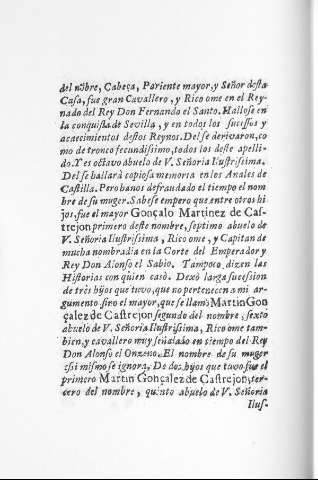 del nõbre, Cabeça, Pariente mayor, y Señor desta
Casa, fue gran Cavallero, y Rico ome en el Rey-
nado del Rey Don Fernando el Santo. Hallose en
la conquista de Sevilla, y en todos los sucessos y
acaecimientos destos Reynos. Del se derivaron, co
mo de tronco fecundissimo, todos los deste apelli-
do. Y es octavo abuelo de V. Señoria Ilustrissima.
Del se hallarà copiosa memoria en los Anales de
Castilla. Pero hanos defraudado el tiempo el nom
bre de su muger. Sabese empero que entre otros hi
jos, fue el mayor Gonçalo Martinez de Cas-
trejon primero deste nombre, septimo abuelo de
V. Señoria Ilustrissima, Rico ome, y Capitan de
mucha nombradia en la Corte del Emperador y
Rey Don Alonso el Sabio. Tampoco dizen las
Historias con quien casò. Dexò larga sucession
de tres hijos que tuvo, que no pertenecen a mi ar-
gumento sino el mayor, que se llamò Martin Gon
çalez de Castrejon segundo del nombre, sexto
abuelo de V. Señoria Ilustrissima, Rico ome tam-
bien, y cavallero muy señalado en tiempo del Rey
Don Alonso el Onzeno. El nombre de su muger
assi mismo se ignora. De dos hijos que tuvo fue el
primero Martin Gonçalez de Castrejon, ter-
cero del nombre, quinto abuelo de V. Señoria
Ilus-